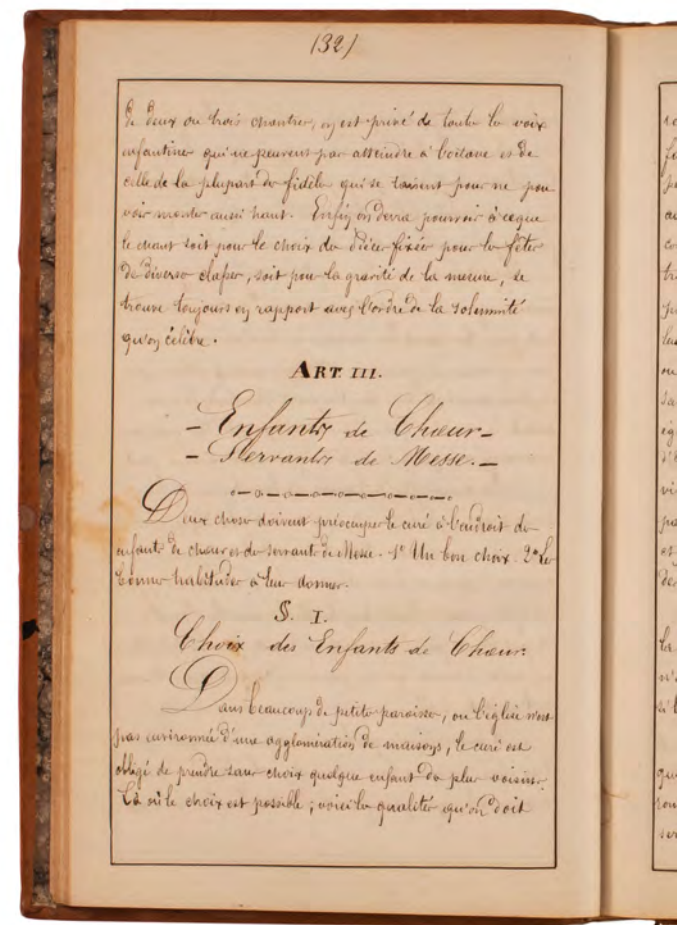 (32)
de deux ou trois chantres, on est privé de toutes les voix
enfantines qui ne peuvent pas atteindre à l'octave et de
celle de la plupart des fidèles qui se taisent pour ne pou
voir monter aussi haut. Enfin on devra pourvoir à ce que
le chant soit pour le choix des pièces fixées pour les fêtes
de diverses classes, soit pour la gravité de la mesure, se
trouve toujours en rapport avec l'ordre de la solemnité
qu'on célèbre.
ART. III.
- Enfants de Chœur -
- Servants de Messe. -
Deux choses doivent préoccuper le curé à l'endroit des
enfants de chœur et des servants de Messe. 1° Un bon choix. 2° Les
bonnes habitudes à leur donner.
§. I.
Choix des Enfants de Chœur.
Dans beaucoup de petites paroisses, où l'église n'est
pas environnée d'une agglomération de maisons, le curé est
obligé de prendre sans choix quelque enfant des plus voisins.
Là où le choix est possible ; voici les qualités qu'on doit